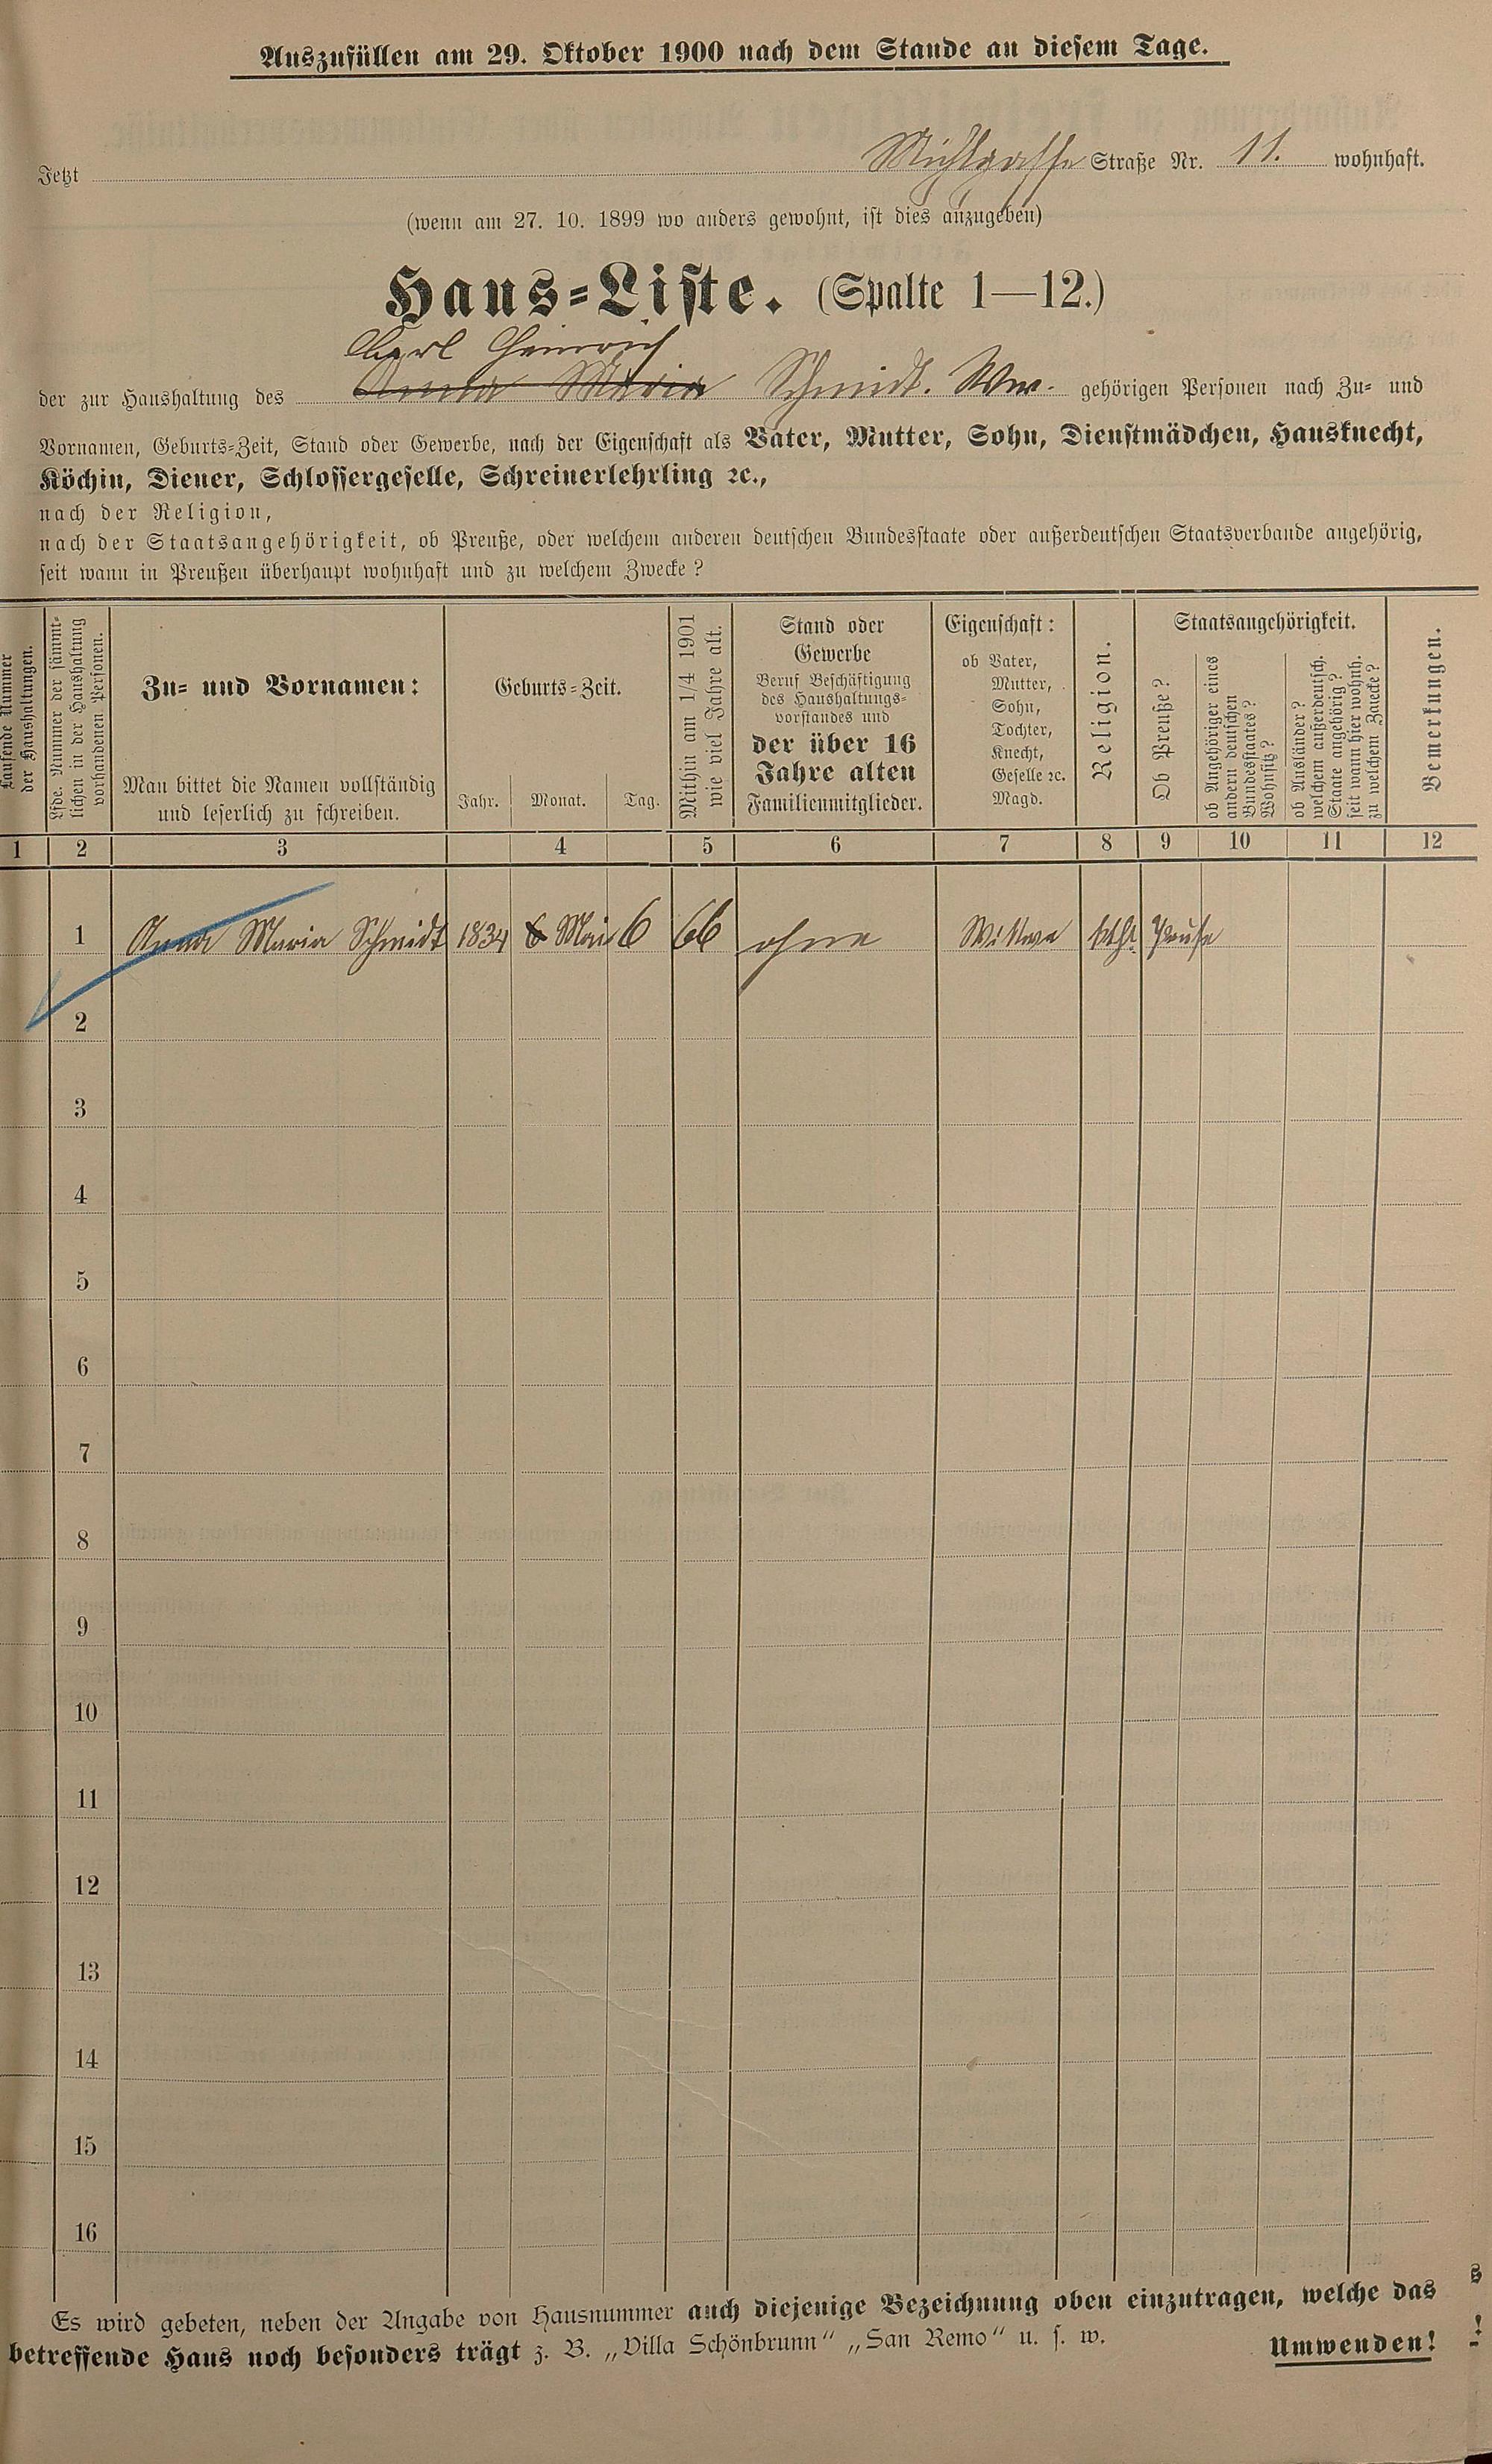 Auszufüllen am 29. Oktober 1900 nach dem Stande an diesem Tage.
Jetzt Mühlgasse Straße Nr. 11. wohnhaft.
(wenn am 27. 10. 1899 wo anders gewohnt, ist dies anzugeben)
Haus-Liste. (Spalte 1—12.)
Carl Heinrich
der zur Haushaltung des Anna Maria Schmidt. Ww. gehörigen Personen nach Zu- und
Vornamen, Geburts-Zeit, Stand oder Gewerbe, nach der Eigenschaft als Vater, Mutter, Sohn, Dienstmädchen, Hausknecht,
Köchin, Diener, Schlossergeselle, Schreinerlehrling ꝛc.,
nach der Religion,
nach der Staatsangehörigkeit, ob Preuße, oder welchem anderen deutschen Bundesstaate oder außerdeutschen Staatsverbande angehörig,
seit wann in Preußen überhaupt wohnhaft und zu welchem Zwecke?
Laufende Nummer
der Haushaltungen.
Lfde. Nummer der sämmt-
lichen in der Haushaltung
vorhandenen Personen.
Zu- und Vornamen:
Man bittet die Namen vollständig
und leserlich zu schreiben.
Geburts-Zeit.
Jahr. Monat. Tag.
Mithin am 1/4 1901
wie viel Jahre alt.
Stand oder
Gewerbe
Beruf Beschäftigung
des Haushaltungs-
vorstandes und
der über 16
Jahre alten
Familienmitglieder.
Eigenschaft:
ob Vater,
Mutter,
Sohn,
Tochter,
Knecht,
Geselle ꝛc.
Magd.
Religion.
Staatsangehörigkeit.
Ob Preuße?
ob Angehöriger eines
andern deutschen
Bundesstaates?
Wohnsitz?
ob Ausländer?
welchem außerdeutsch.
Staate angehörig?
seit wann hier wohnh.
zu welchem Zwecke?
Bemerkungen.
1 2 3 4 5 6 7 8 9 10 11 12
1 Anna Maria Schmidt 1834 6 Mai 6 66 ohne Wittwe kth. Preuße
2
3
4
5
6
7
8
9
10
11
12
13
14
15
16
Es wird gebeten, neben der Angabe von Hausnummer auch diejenige Bezeichnung oben einzutragen, welche das
betreffende Haus noch besonders trägt z. B. „Villa Schönbrunn“ „San Remo“ u. s. w. Umwenden!